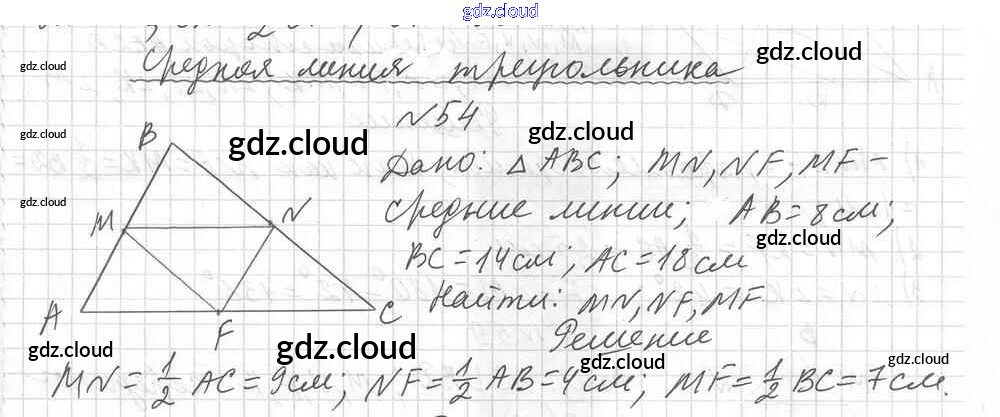 gdz.cloud
Средняя линия треугольника
gdz.cloud
gdz.cloud
N54
gdz.cloud
gdz.cloud
gdz.cloud
B
Дано: △ ABC; MN, NF, MF –
gdz.cloud
M
N
средние линии; AB = 8 см;
gdz.cloud
BC = 14 см; AC = 18 см
A
F
C
Найти: MN, NF, MF
Решение
gdz.cloud
gdz.cloud
gdz.cloud
gdz.cloud
MN = 1/2 AC = 9 см; NF = 1/2 AB = 4 см; MF = 1/2 BC = 7 см.